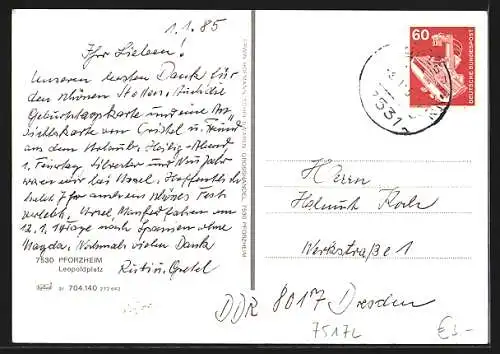 1.1.85
Ihr Lieben!
Unseren besten Dank für
den schönen Stollen, auch die
Geburtstagskarte und eine An-
sichtskarte von Cristel u.
aus dem Urlaub. Heilig-Abend
1. Feiertag Silvester und Neujahr
waren wir bei Ursel. Hoffentlich
habt Ihr auch ein schönes Fest
verlebt. Ursel, Manfred fahren am
12.1. 14 Tage nach Spanien ohne
Magda. Nochmals vielen Dank
7530 PFORZHEIM
Leopoldplatz
704.140
ERWIN HOFMANN
GROSSHANDEL, 7530 PFORZHEIM
60
DEUTSCHE BUNDESPOST
7531
Herrn
Helmut
Werkstraße 1
DDR 8017 Dresden
7517L